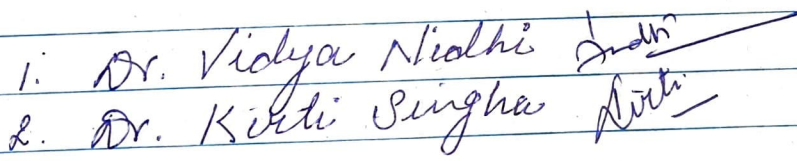 1. Dr. Vidya Nidhi
2. Dr. Kirti Singha Kirti